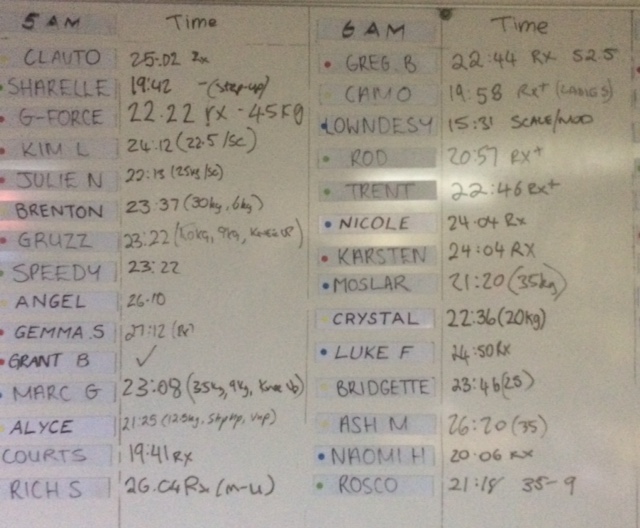 5 AM Time
CLAUTO 25.02 Rx
SHARELLE 19:42 -(step-up)
G-FORCE 22.22 rx - 45KG
KIM L 24:12 (22.5/sc)
JULIE N 22:13 (25kg/sc)
BRENTON 23:37 (30kg, 6kg)
GRUZZ 23:22 (40kg, 9kg, Knee UP)
SPEEDY 23:22
ANGEL 26.10
GEMMA.S 27:12 (Rx)
GRANT B ✓
MARC G 23:08 (35kg, 9kg, Knee Up)
ALYCE 21:25 (12.5kg, Step up, Vup)
COURTS 19:41 Rx
RICH S 26.04 Rx (m-u)
6 AM Time
GREG.B 22:44 RX 52.5
CAMO 19:58 Rx+ (LADIES)
LOWNDESY 15:31 SCALE/MOD
ROD 20:57 Rx+
TRENT 22:46 Rx+
NICOLE 24.04 Rx
KARSTEN 24:04 RX
MOSLAR 21:20 (35kg)
CRYSTAL 22:36 (20kg)
LUKE F 24:50 Rx
BRIDGETTE 23:46 (25)
ASH M 26:20 (35)
NAOMI.H 20:06 Rx
ROSCO 21:18 35-9